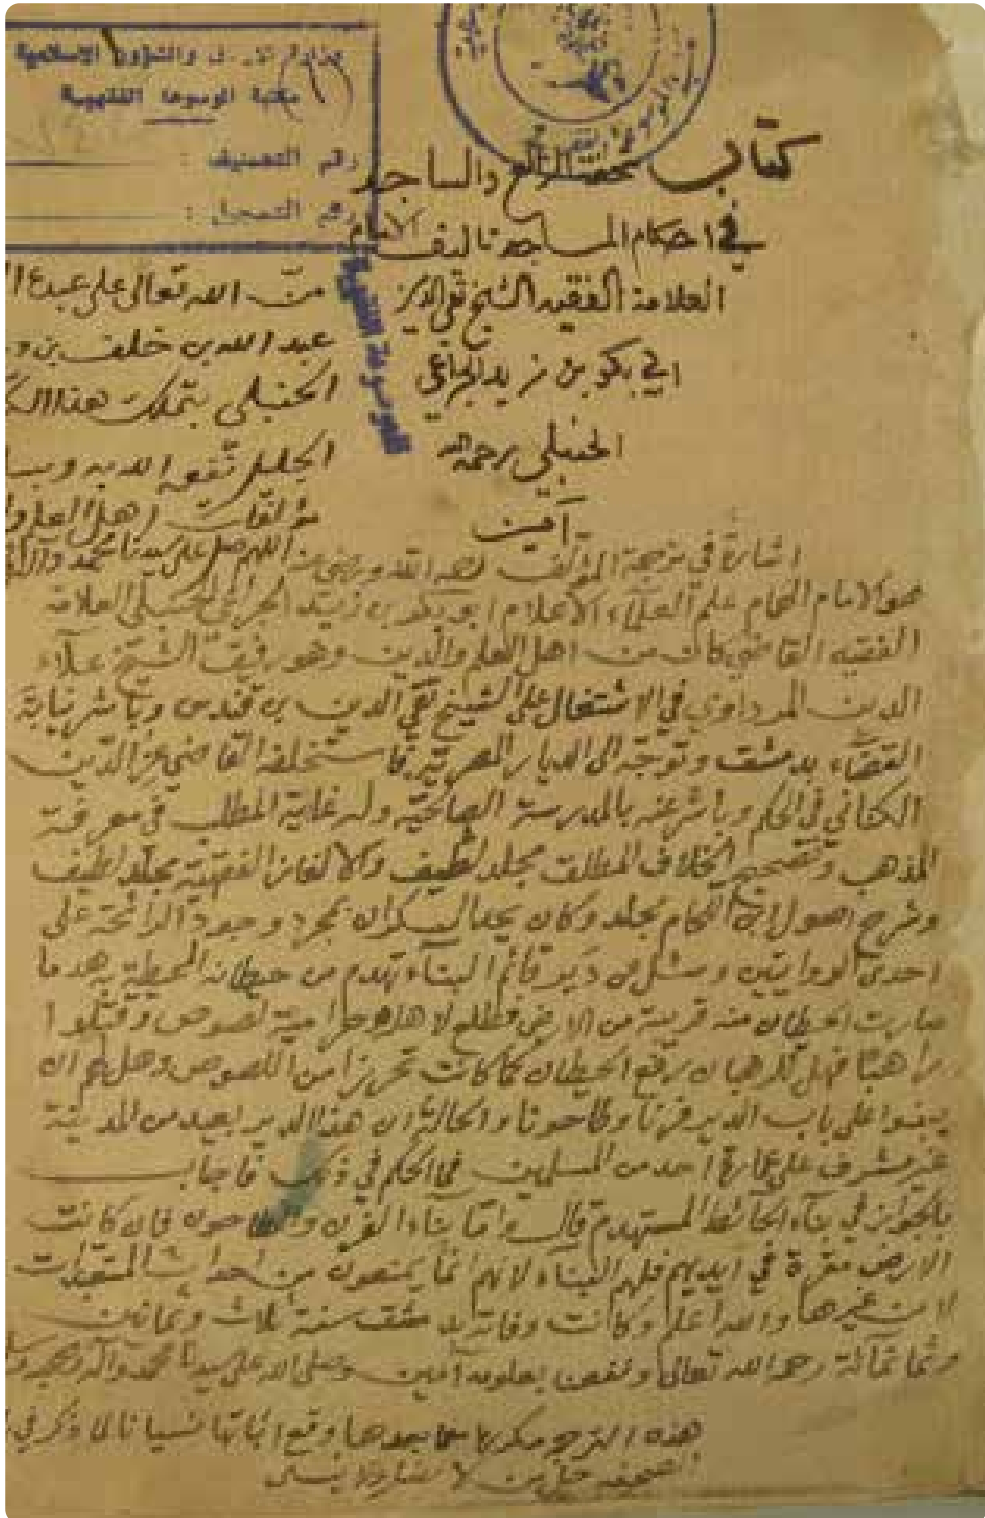 وزارة الأوقاف والشؤون الاسلامية
مكتبة الموسوعة الفقهية
رقم التصنيف :
رقم التسجيل :
كتاب تحفة الراكع والساجد
في احكام المساجد تاليف الامام
العلامة الفقيه الشيخ تقي الدين
ابي بكر بن زيد الجراعي
الحنبلي رحمه الله
آمين
منّ الله تعالى على عبده
عبد الله بن خلف بن
الحنبلي بتملك هذا
الجليل نفعه الله به
مؤلفات اهل العلم
اللهم صل على سيدنا محمد
اشارة في ترجمة المؤلف رحمه الله ورضي عنه
هو الامام الهمام علم العلماء الاعلام ابو بكر بن زيد الجراعي الحنبلي العلامة
الفقيه القاضي كان من اهل العلم والدين وهو رفيق الشيخ علاء
الدين المرداوي في الاشتغال على الشيخ تقي الدين بن قندس وباشر نيابة
القضاء بدمشق وتوجه الى الديار المصرية فاستخلفه القاضي عز الدين
الكناني في الحكم وباشر عنه بالمدرسة الصالحية وله غاية المطلب في معرفة
المذهب وتصحيح الخلاف المطلق مجلد لطيف والالغاز الفقهية مجلد لطيف
وشرح اصول ابن اللحام مجلد وكان يحد السكران بمجرد وجود الرائحة على
احدى الروايتين وسئل عن دير قائم البناء تهدم من حيطانه المحيطة به هدما
صارت الحيطان منه قريبة من الارض فطلع لاهله حرامية لصوص وقتلوا
راهبا فهل للرهبان رفع الحيطان كما كانت تحرزا من اللصوص وهل لهم ان
يبنوا على باب الدير فرنا وطاحونا والحالة ان هذا الدير بعيد من المدينة
غير مشرف على عمارة احد من المسلمين فما الحكم في ذلك فاجاب
بالجواز في بناء الحائط المستهدم قال واما بناء الفرن والطاحون فان كانت
الارض مقرة في ايديهم فلهم البناء لانهم انما يمنعون من احداث المتعبدات
لا من غيرها والله اعلم وكانت وفاته بدمشق سنة ثلاث وثمانين
وثمانمائة رحمه الله تعالى ونفعنا بعلومه آمين وصلى الله على سيدنا محمد وآله وصحبه وسلم
هذه الترجمة مكررها بما بعدها وقع اثباتها نسيانا لما ذكر في
الصحيفة